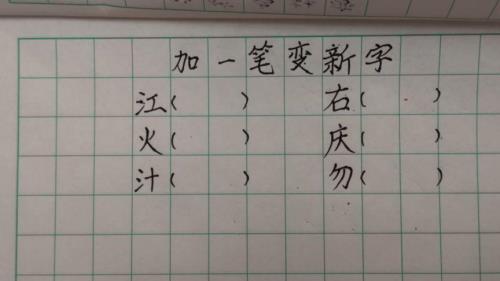 加一笔变新字
江( ) 右( )
火( ) 庆( )
汁( ) 勿( )